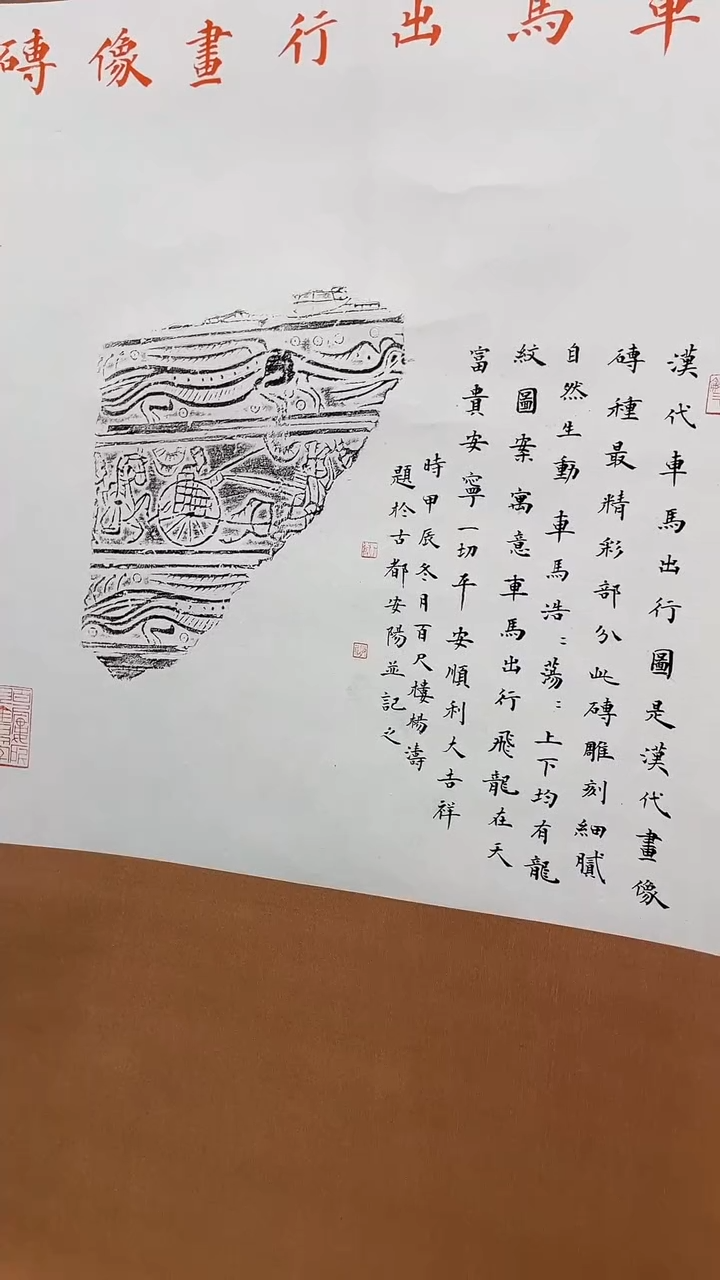 車馬出行畫像磚
漢代車馬出行圖是漢代畫像
磚種最精彩部分此磚雕刻細膩
自然生動車馬浩:蕩:上下均有龍
紋圖案寓意車馬出行飛龍在天
富貴安寧一切平安順利大吉祥
時甲辰冬月百尺樓楊濤
題於古都安陽並記之